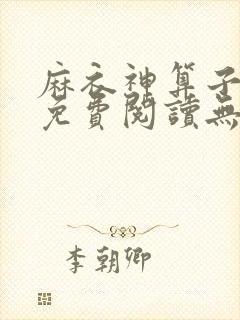 麻衣神算子
免費閱讀無
李朝卿